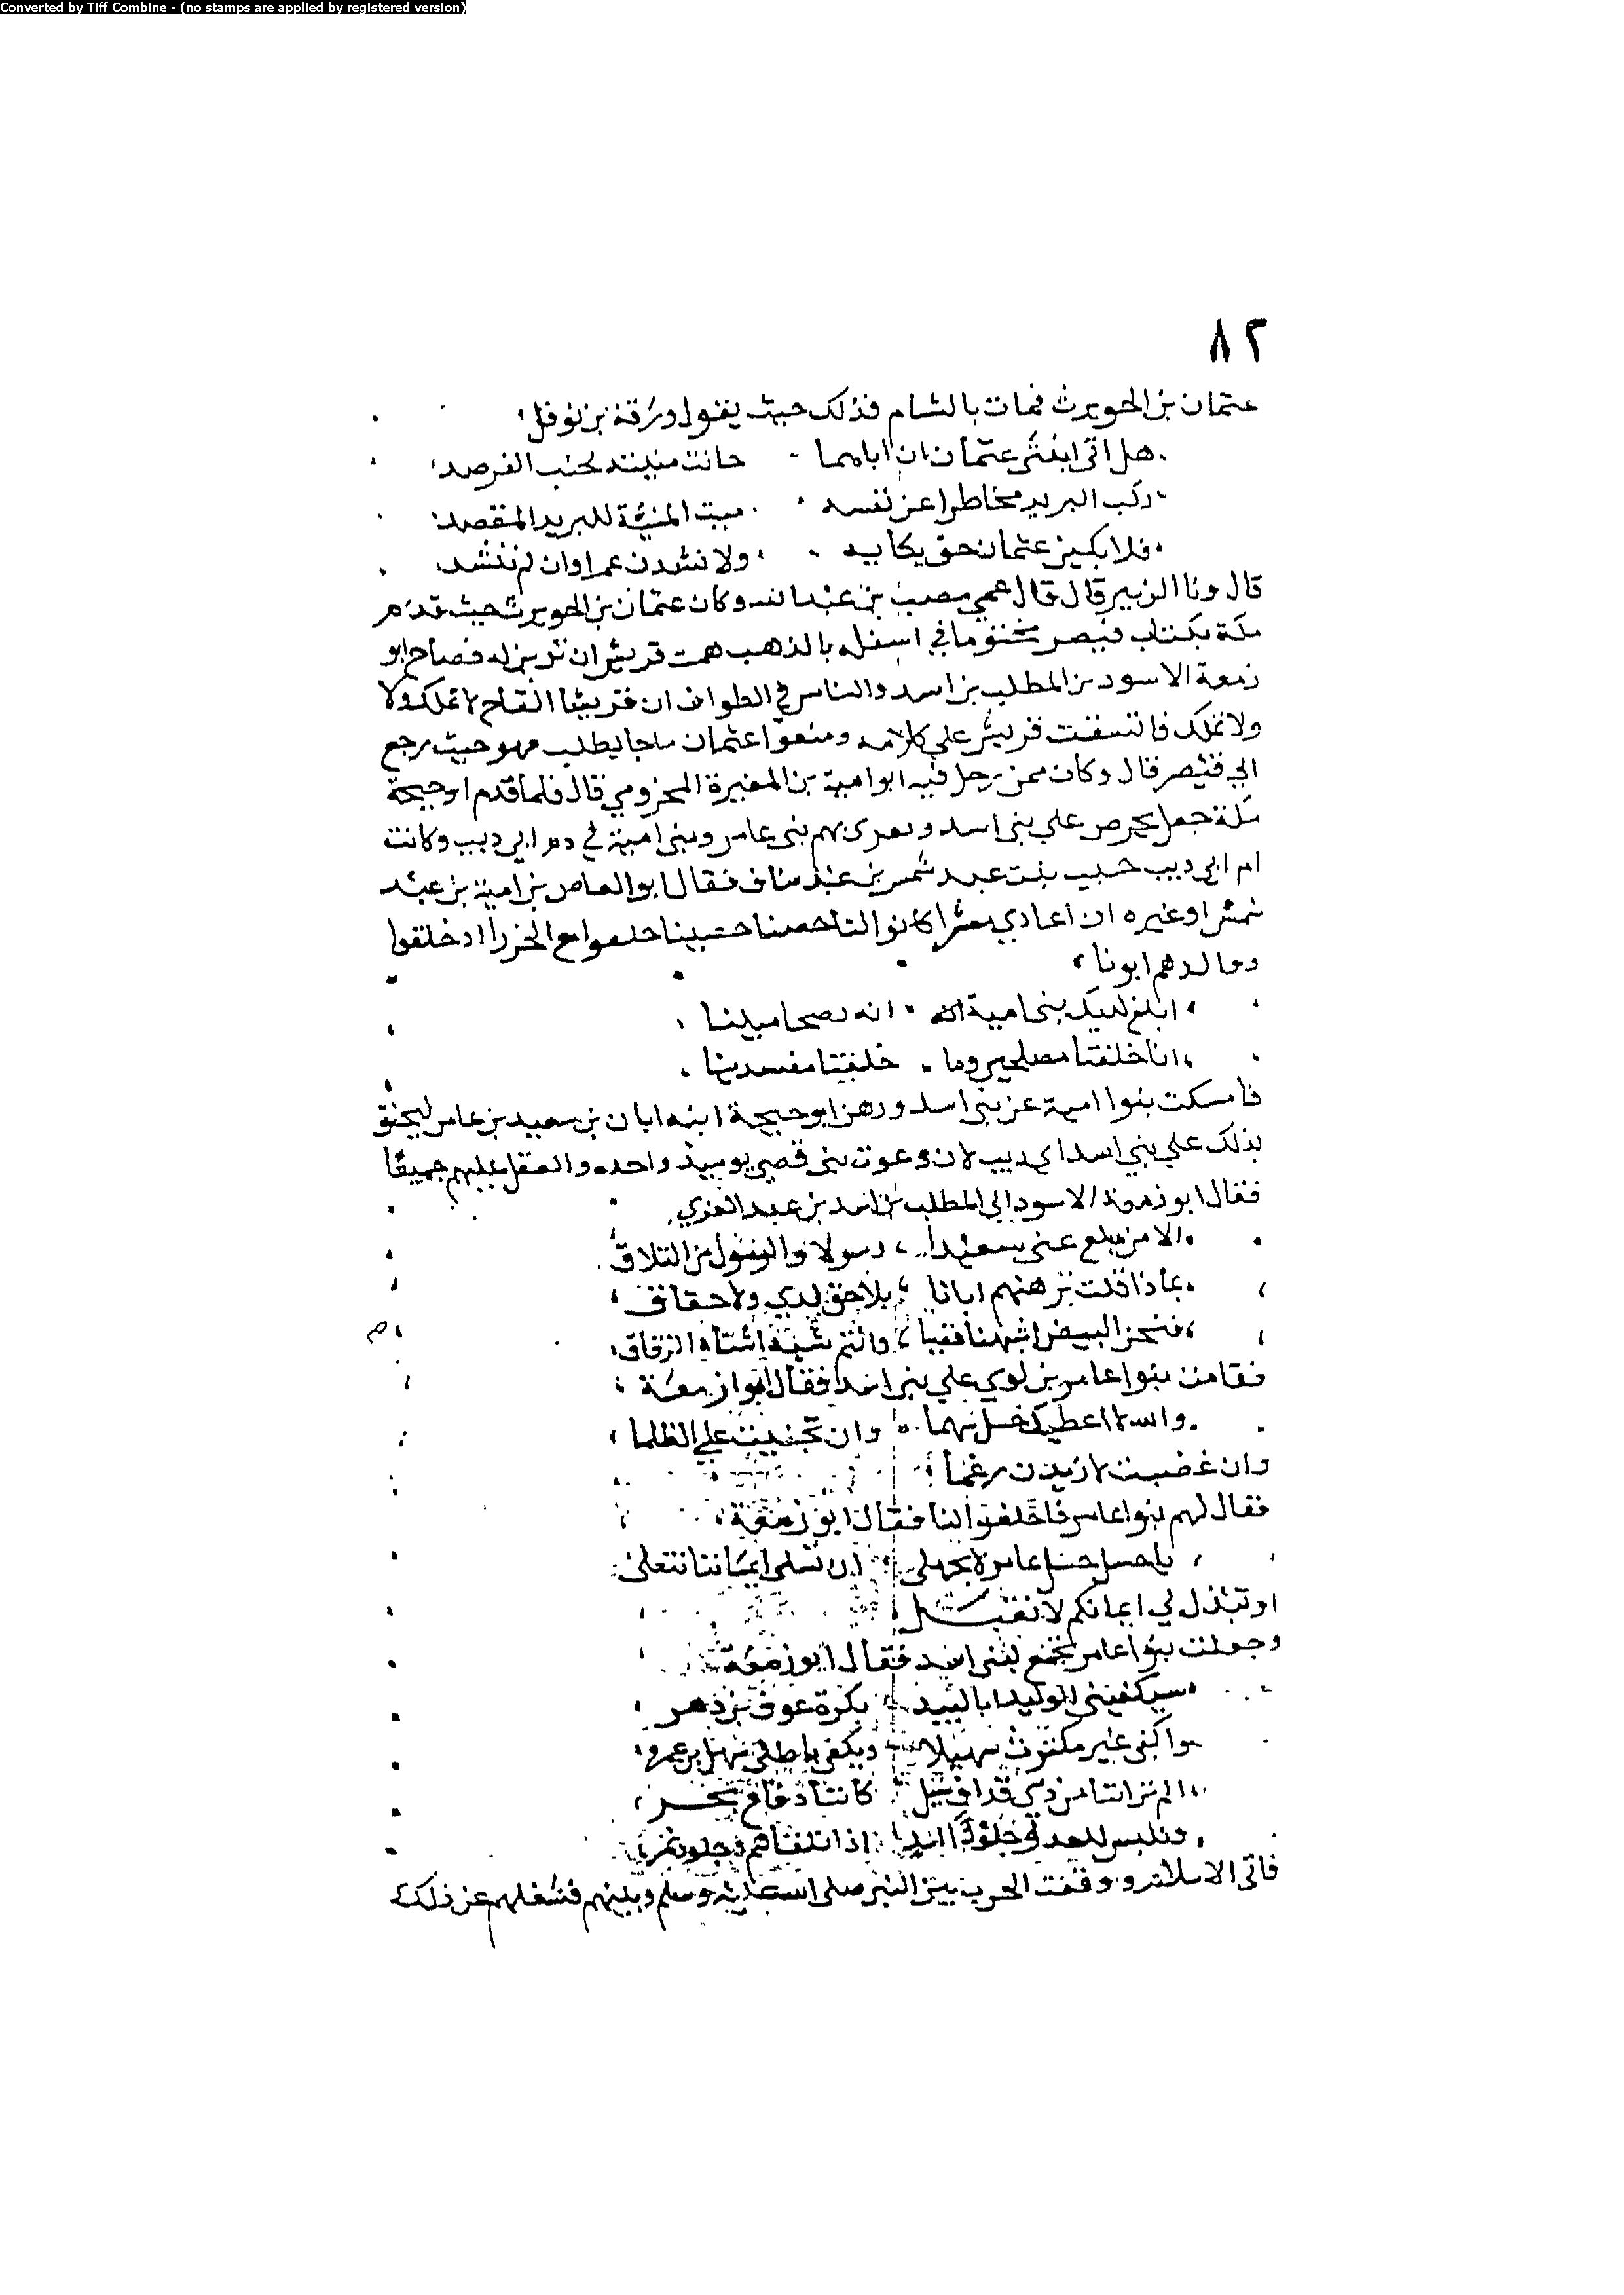 Converted by Tiff Combine - (no stamps are applied by registered version)
٨٢
عثمان بن الحويرث فمات بالشام فذلك حيث يقول ورقة بن نوفل
هل اتى ابنتى عثمان ان اباهما حانت منيته لجنب الفرصد
ركب البريد مخاطرا عن نفسه ميت المنية للبريد المقصد
فلا بكين عثمان حق بكايه ولا نشدن عمرا وان لم ننشد
قال ونا الزبير قال قال عمي مصعب بن عبد الله وكان عثمان بن الحويرث حيث قدم
مكة بكتاب قيصر مختوما في اسفله بالذهب همت قريش ان تدين له فصاح ابو
زمعة الاسود بن المطلب بن اسد والناس في الطواف ان قريشا لقاح لا تملك ولا
ولا تملك فاتسقت قريش على كلامه ومنعوا عثمان ما جا يطلب فهو حيث رجع
الي قيصر قال وكان ممن رجل فيه ابو امية بن المغيرة المخزومي قال فلما قدم ابو حيحة
مكة جعل يحرص علي بنى اسد و بهم بنى عامر وبنى امية في دم ابي ديب وكانت
ام ابي ديب حبيب بنت عبد شمس بن عبد مناف فقال ابو العاص بن امية بن عبد
شمس او غيره ان اعادي معشرا كانوا لنا حصنا حصينا خلقوا مع الجوزا اذ خلقوا
ووالدهم ابونا
ابلغ لديك بنى امية انه نصحا مبينا
انا خلقنا مصلحين وما خلقنا مفسدينا
فامسكت بنوا امية عن بنى اسد ورهن ابو حيحة ابنه ابان بن سعيد بن عامر ليحقق
بذلك علي بني اسد ديب لان دعوت بنى قصي يوميذ واحده والعقل عليهم جميعا
فقال ابو زمعة الاسود ابي المطلب بن اسد بن عبد العزي
الا من مبلغ عنى سعيدا رسولا والرسول من التلاق
بماذا قلت ترهنهم ابانا بلا حق لدي ولا حقاق
فنحن البيض اشبهنا قصيا وانتم شبه استاه الزقاق
فقامت بنوا عامر بن لوي علي بنى اسد فقال ابوا زمعة
والله لا اعطيك خسل سهما وان تجنيت علي الظلما
وان غضبت لازيدن رغما
فقال لهم بنوا عامر فاحلفوا لنا فقال ابو زمعة
يا حسل حسل عامر لا تجهلى ان تسلى ايماننا ننتعلى
او تبذل لي ايمانكم لا نقبل
وجعلت بنوا عامر تجمع لبنى اسد فقال ابو زمعة
سيكفينى الوليد ابا لبيد بكرة عوف بن دهر
واكفى غير مكترث سهيلا ويكفى باطلى سهل بن عمرو
الم تر اننا من ذي قداف نسيل كاننا دفاع بحر
ونلبس للعدو جلود اسد اذا نلقاهم وجلود نمر
فاتى الاسلام ووقفت الحرب بين النبي صلى الله عليه وسلم وبينهم فشغلهم عن ذلك